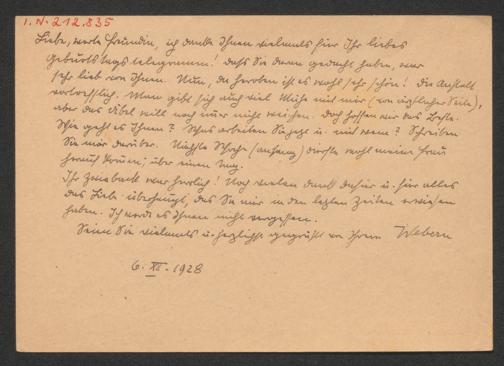 I.N. 212.835
Liebe, werte Freundin, ich danke Ihnen vielmals für Ihr liebes
Geburtstagstelegramm! Daß Sie daran gedacht haben, war
sehr lieb von Ihnen. Nun, da heroben ist es wohl sehr schön! Die Anstalt
vortrefflich. Man gibt sich auch viel Mühe mit mir (von ärztlicher Seite),
aber das Übel will noch nicht weichen. Doch hoffen wir das Beste.
Wie geht es Ihnen? Was arbeiten Sie jetzt u. mit wem? Schreiben
Sie mir darüber. Nächste Woche (anfang) dürfte wohl meine Frau
herauf kommen; über einen Tag.
Ihr Zwieback war herrlich! Noch vielen Dank dafür u. für alles
das Liebe überhaupt, das Sie mir in den letzten Zeiten erwiesen
haben. Ich werde es Ihnen nicht vergessen.
Seien Sie vielmals u. herzlichst gegrüßt von Ihrem Webern
6. XII. 1928